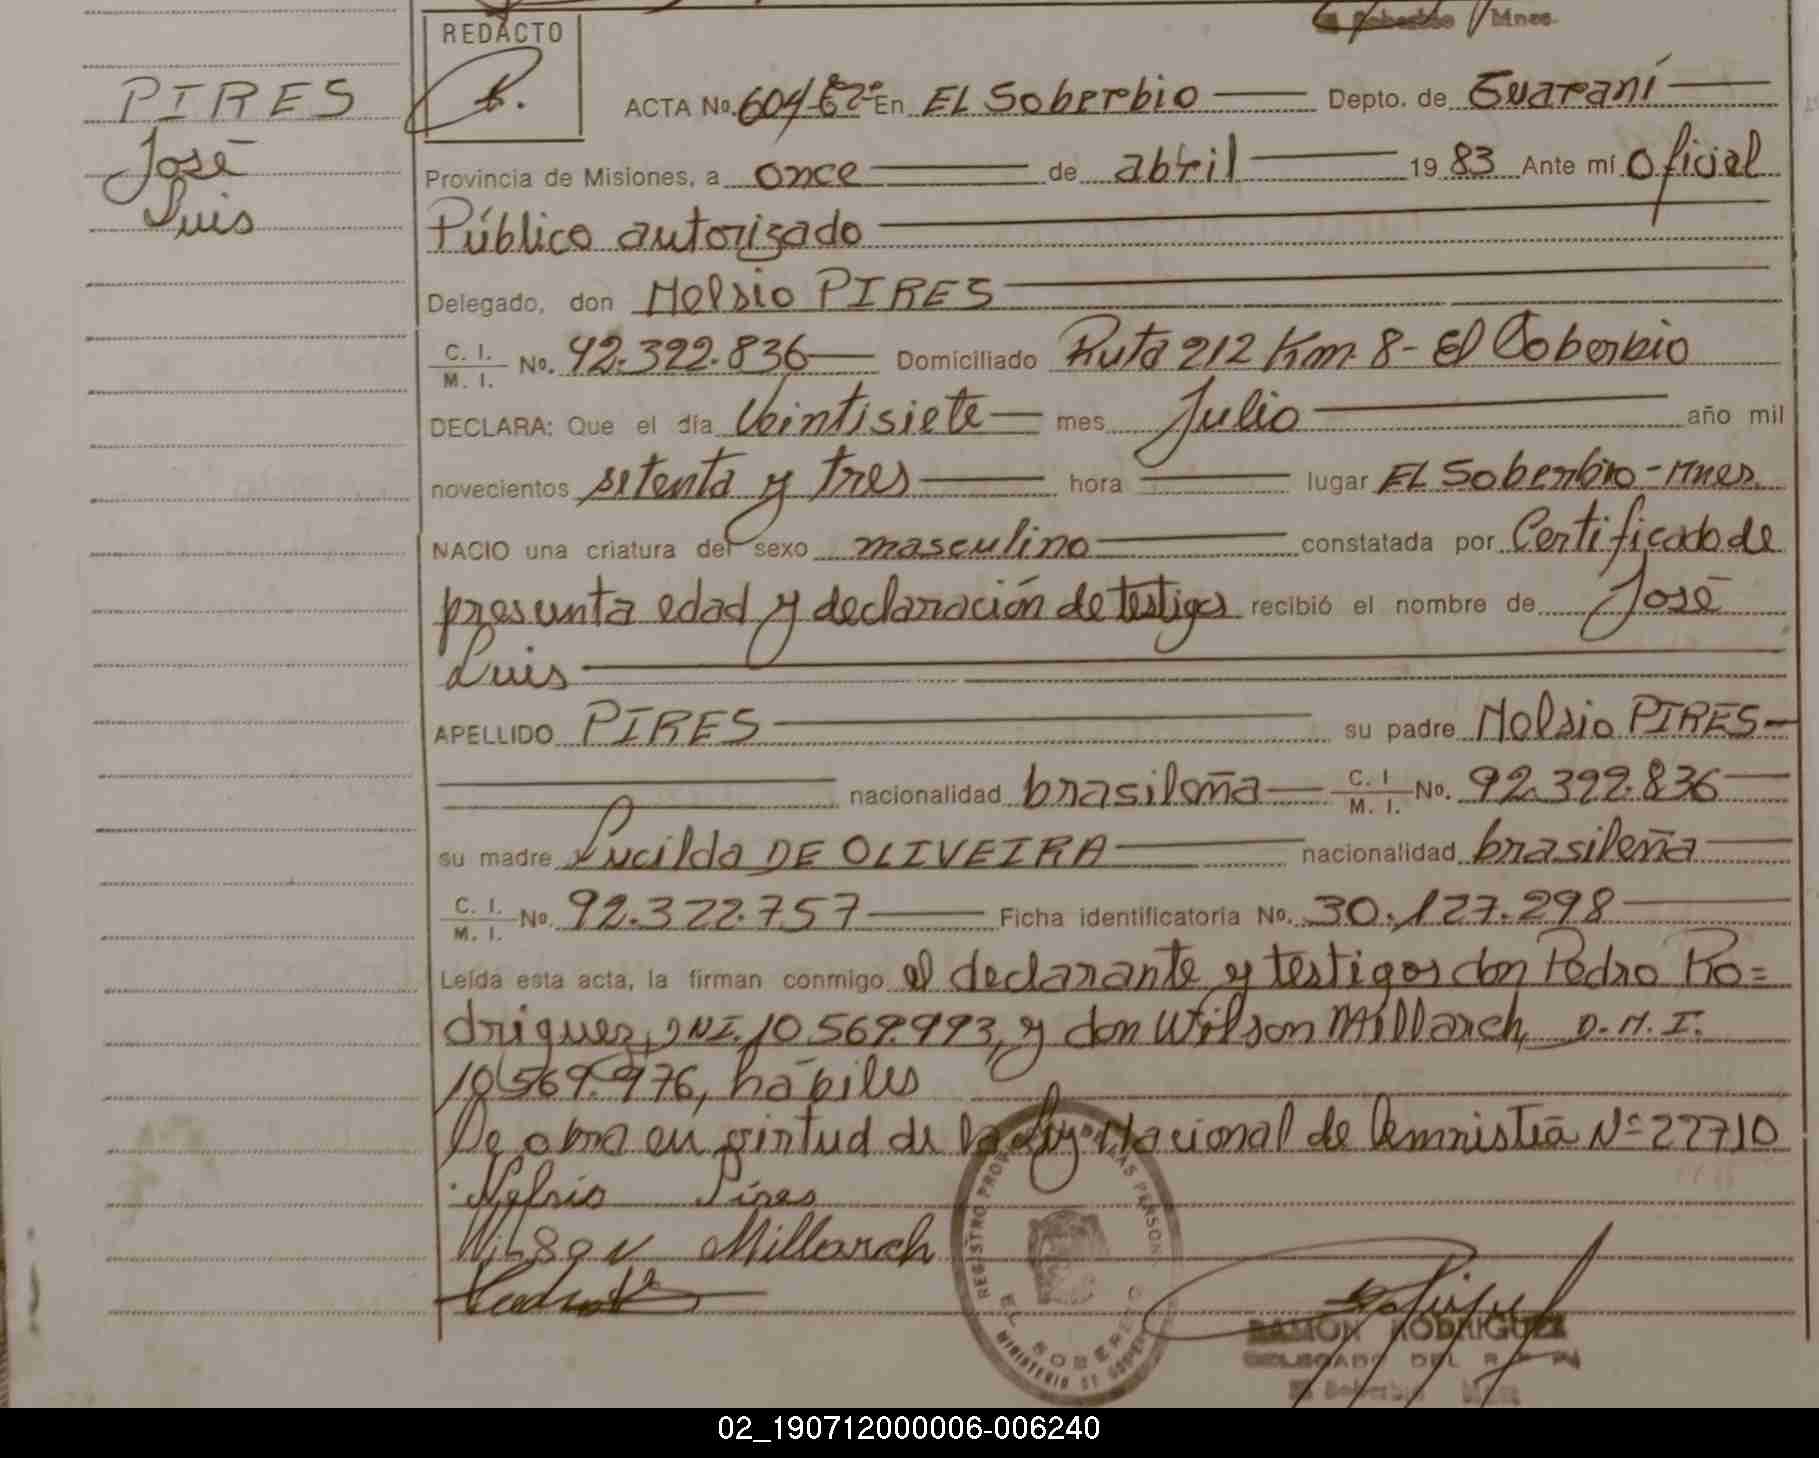 Soberbio Mnes.
REDACTO
PIRES
José
Luis
ACTA No. 604 En EL Soberbio Depto. de Guaraní
Provincia de Misiones, a once de abril 1983 Ante mí Oficial
Público autorizado
Delegado, don Nelsio PIRES
C. I. / M. I. No. 92.322.836 Domiciliado Ruta 212 Km. 8 - El Soberbio
DECLARA: Que el día Veintisiete mes Julio año mil
novecientos setenta y tres hora lugar EL Soberbio - Mnes
NACIO una criatura del sexo masculino constatada por Certificado de
presunta edad y declaración de testigos recibió el nombre de José
Luis
APELLIDO PIRES su padre Nelsio PIRES
nacionalidad brasileña C. I / M. I. No. 92.322.836
su madre Lucilda DE OLIVEIRA nacionalidad brasileña
C. I. / M. I. No. 92.322.757 Ficha identificatoria No. 30.127.298
Leída esta acta, la firman conmigo el declarante y testigos don Pedro Ro=
driguez, DNI. 10.569.993, y don Wilson Millarch, D.N.I.
10.569.976, hábiles
De obra en virtud de la Ley Nacional de Amnistía Nº 22710
Pires
Wilson Millarch
REGISTRO PROV. DE LAS PERSON.
EL SOBERBIO
MINISTERIO DE GOBIER
RAMON RODRIGUEZ
DELEGADO DEL R
El Soberbio Mnes
02_190712000006-006240